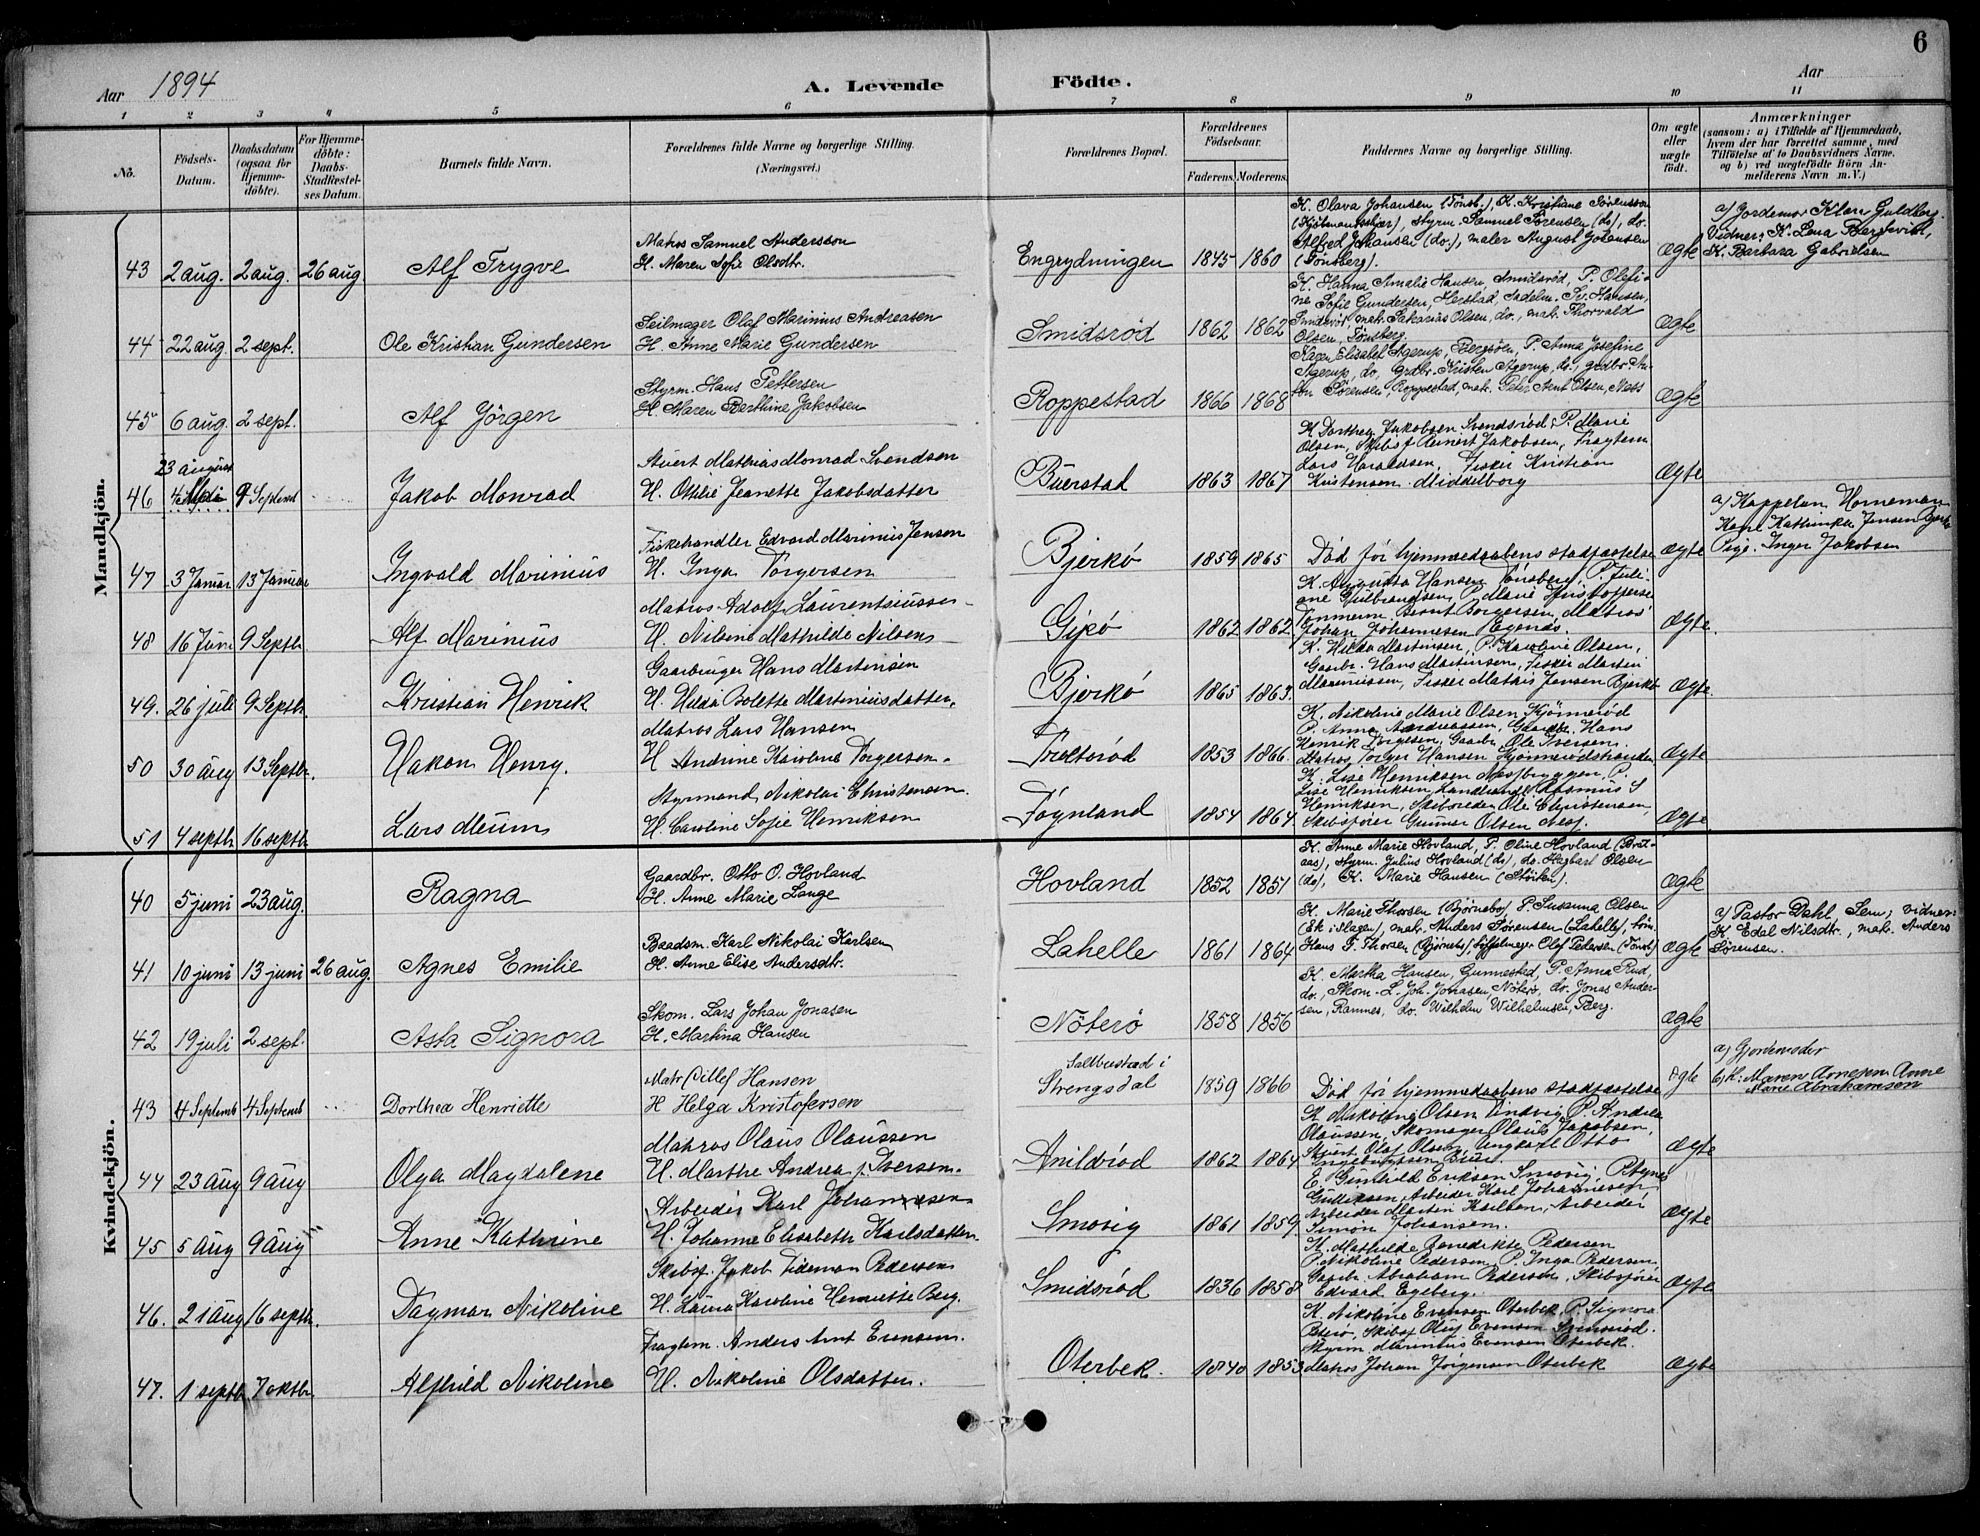 6
Aar 1894
A. Levende
Födte.
Aar
1 2 3 4 5 6 7 8 9 10 11
No.
Födsels-
Datum.
Daabsdatum
(ogsaa for
Hjemme-
döbte).
For Hjemme-
döbte:
Daabs-
Stadfæstel-
ses Datum.
Barnets fulde Navn.
Forældrenes fulde Navne og borgerlige Stilling.
(Næringsvei.)
Forældrenes Bopæl.
Forældrenes
Födselsaar.
Faderens. Moderens.
Faddernes Navne og borgerlige Stilling.
Om ægte
eller
uægte
födt.
Anmærkninger
(saasom: a) i Tilfælde af Hjemmedaab,
hvem der har forrettet samme, med
Tilföielse af to Daabsvidners Navne,
og b) ved uægtefödte Börn An-
melderens Navn m. V.)
Mandkjön.
43 2 aug. 2 aug. 26 aug Alf Trygve
Matros Samuel Andersson
H. Maren Sofie Olsdtr.
Engrydningen 1845 1860
K. Olava Johansen (Tönsb.), K. Kristiane Sørensson
styrm. Samuel Sørensen (do), do.
Alfred Johansen (do.), maler August Johansen
(Tönsberg).
Ægte
a) Jordemor Klara Guldberg.
Vidner: K. Lena Bergevist,
K. Barbara Gabrielsen
44 22 aug 2 sept. Ole Kristian Gundersen
Seilmager Olaf Marinius Andreasen
H. Anne Marie Gundersen
Smidsrød 1862 1862
K. Hanna Amalie Hansen, Smidsröd, P. Olefi-
ne Sofie Gundersen, Herstad, Sadelm. Sv. Hansen,
Smidsröd, mat. Sakarias Olsen, do., mat. Thorvald
Olsen, Tönsberg.
Ægte
45 6 aug. 2 sept. Alf Jörgen
Styrm. Hans Pettersen
H. Maren Berthine Jakobsen
Roppestad 1866 1868
Elisabet Agerup, Bergsöen, P. Anna Josefine
Agerup, do, grdbr. Kristen Agerup, do., grdbr. An-
ton Sörensen, Roppestad, mat. Peter Arnt Olsen, Næss
Ægte
46 23 august 9 Septemb Jakob Monrad
Stuert Mathias Monrad Svendsen
H. Ottilie Jeanette Jakobsdatter
Buerstad 1863 1867
K Dorthea Jakobsen Svendsrød, P. Marie
Olsen, Skibsf Reinert Jakobsen, Fragtem
Lars Haraldsen, Fisker Kristian
Kristensen. Middelborg
Ægte
47 3 Januar 13 Januar Ingvald Marinius
Fiskehandler Edvard Marinius Jensen
H. Inga Torgersen
Bjerkö 1859 1865
Død før hjemmedaabens stadfæstelse
Ægte
a) Kappelan Horneman
Kone Kathinka Jensen
Pige. Inger Jakobsen
48 16 Juni 9 Septbr. Alf Marinius
Matros Adolf Laurentsiussen
H. Nilsine Mathilde Nilsen
Gipö 1862 1862
K. Augusta Hansen Tönsberg, P. Juli-
ane Gulbrandsen P. Marie Kristoffersen
Tömmerm. Bernt Borgersen, Matros
Johan Johannesen Egenäs.
Ægte.
49. 26 juli 9 Septbr. Kristian Henrik
Gaardbruger Hans Martensen
H. Hilda Bolette Marteniusdatter,
Bjerkö 1865 1863.
K. Hilda Martinsen, P. Karoline Olsen,
Gaarbr. Hans Martinsen, Fisker Martin
Marinussen, Fisker Mathis Jensen Bjerkö
Ægte.
50 30 aug 13 Septbr. Hakon Henry.
Matros Lars Hansen
H Andrine Karoline Torgersen.
Trælerød 1853 1866.
K. Nikoline Marie Olsen Kjönnerød
P. Anne Andreassen, Gaardbr. Hans
Henrik Torgesen, Gaarbr Ole Iversen.
Matros Torger Hansen Kjönnerødstranden
Ægte
51 4 septbr 16 septbr. Lars
Styrmand Nikolai Christensen.
H. Caroline Sofie Henriksen
Föynland 1854 1864.
K. Lise Henriksen
Lise Henriksen, Landhandl. Rasmus S
Henriksen, Skibsreder Ole Christensen,
Skibsfører Gunnar Olsen
Ægte.
Kvindekjön.
40 5 juni 23 aug. Ragna
Gaardbr. Otto O. Hovland
H. Anne Marie Lange
Hovland 1852 1851
K. Anne Marie Hovland, P. Oline Hovland (Bret-
aas), styrm. Julius Hovland (do), do. Hagbart Olsen
(do), K. Marie Hansen
Ægte
41 10 juni 13 juni 26 aug. Agnes Emilie
Baadsm. Karl Nikolai Karlsen
H. Anne Elise Andersdtr.
Lahelle 1861 1864
K. Marie Thorsen (Björnebo) P. Susanna Olsen
(Ek i Slagen), mat. Anders Sørensen (Lahelle), töm.
Hans F. Thorsen (Björneb.), Olaf Pedersen (Tönsb.)
Ægte
a) Pastor Dahl, Sem; vidner:
K. Edel Nilsdtr., mat. Anders
Sørensen.
42 19 juli 2 sept. Asta Signora
Skom. Lars Johan Jonasen
H. Martina Hansen
Nöterö 1858 1856
K. Martha Hansen, Gunnestad, P. Anna Rud,
do., Skom. L. Joh. Jonasen, Nöterö, do. Jonas Ander-
sen, Ramnes, do. Wilhelm Wilhelmsen, Berg.
Ægte
43 4 Septemb 4 Septemb Dorthea Henriette
Matr Ditlef Hansen
H Helga Kristofersen
Saltbustad i
Strengsdal 1859 1866
Død før hjemmedaabens stadfæstelse
Ægte
a) Gjordemoder
b) K: Maren Arnesen Anne
Marie Abrahamsen
44 23 Aug 9 Aug Olga Magdalene
Matros Olaus Olaussen
H. Marthe Andrea J. Iversen.
Anildsrød 1862 1864
K Nikoline Olsen Tindvig P. Andrea
Olaussen, Skomager Olaus Jakobsen,
Stuert Olaf Olsen Ungkarl Otto
Ingebretsen Buer.
Ægte
45 5 Aug 9 Aug Anne Kathrine
Arbeider Karl Johannesen
H. Johanne Elisabeth Karlsdatter.
Smovig 1861 1859.
E. Gunhild Eriksen Smovig, P. Agnes
Gulliksen, Arbeider Karl Johannesen
Arbeider Martin Karlsen, Arbeider
Simon Johansen.
Ægte
46. 21 Aug 16 septbr. Dagmar Nikoline
Skibsf. Jakob Tideman Pedersen
H. Laura Karoline Henriette Berg.
Smidsrød 1836 1858
K. Mathilde Benedikte Pedersen
P. Nikoline Pedersen, P. Inga Pedersen,
Gaarbr. Abraham Pedersen, Skibsfører
Edvard Egeberg.
Ægte
47. 1 septbr 7 oktbr. Alfhild Nikoline
Fragtem. Anders Arnt Evensen.
H. Nikoline Olsdatter.
Oterbek. 1840 1853
K. Nikoline Evensen Oterbek, P. Signora
Skibsf Oluf Evensen Smidsrød.
Styrm. Marentius Evensen Oterbek.
Matros Johan Jørgensen Oterbek
Ægte